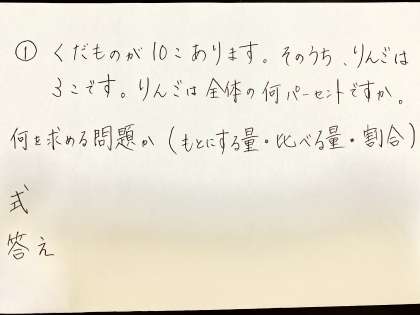 ① くだものが10こあります。そのうち、りんごは
3こです。りんごは全体の何パーセントですか。
何を求める問題か(もとにする量・比べる量・割合)
式
答え